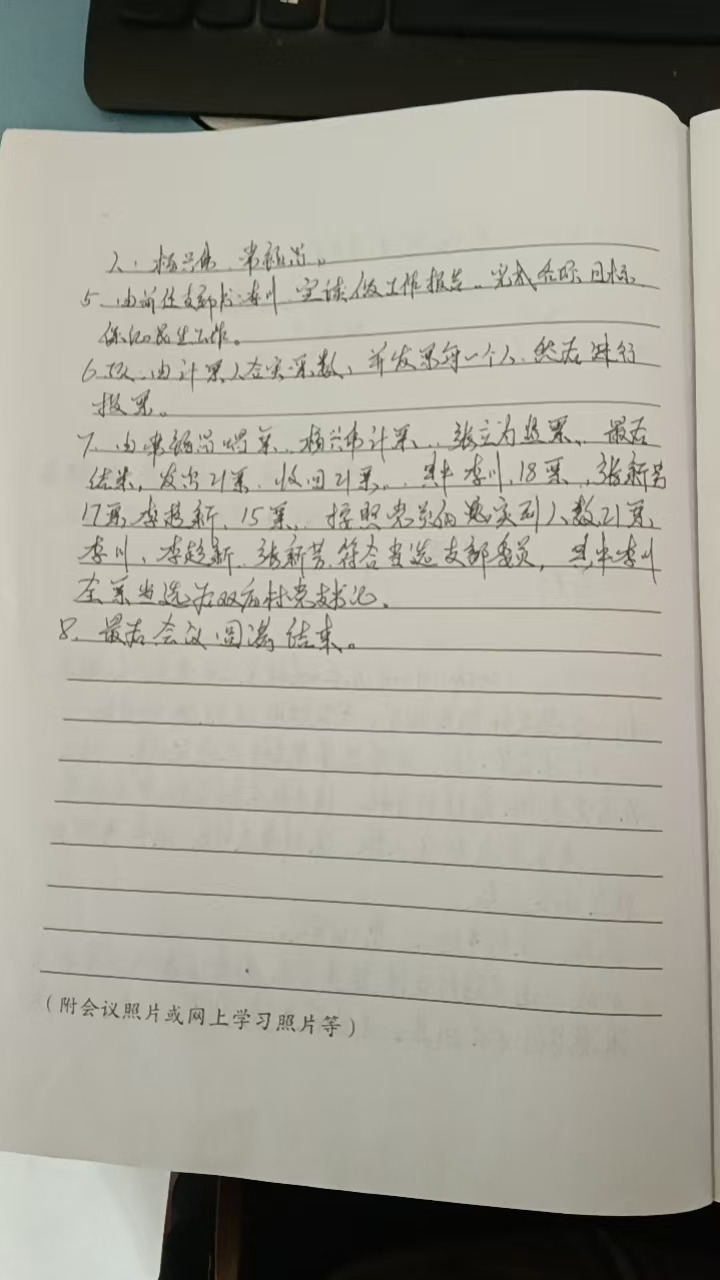 人：杨兴伟、常颖岗。
5、由前任支部书记李川、宣读做工作报告。完成各际目标
保记民生工作。
6、由计票人合实票数，并发票每一个人、然后进行
投票。
7、由常颖岗唱票、杨兴伟计票、张立为监票、最后
结果，发出21票、收回21票、其中李川、18票、张新芳
17票、李赵新、15票、按照党员的 实到人数21票、
李川、李赵新、张新芳符合当选支部委员，其中李川
全票当选为双庙村党支书记、
8、最后会议圆满结束。
（附会议照片或网上学习照片等）